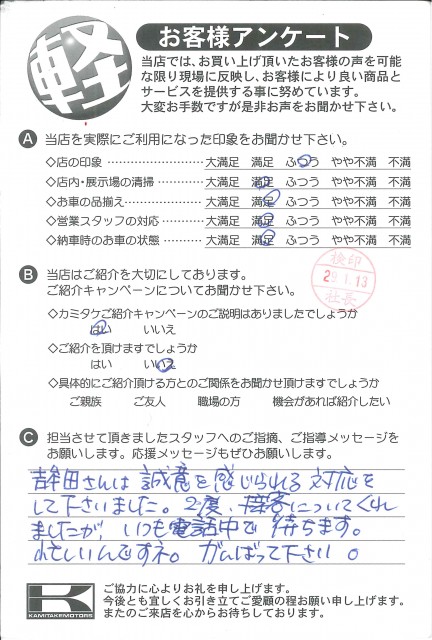 軽
お客様アンケート
当店では、お買い上げ頂いたお客様の声を可能
な限り現場に反映し、お客様により良い商品と
サービスを提供する事に努めています。
大変お手数ですが是非お声をお聞かせ下さい。
A 当店を実際にご利用になった印象をお聞かせ下さい。
◇店の印象 ………………… 大満足 満足 ふつう やや不満 不満
◇店内・展示場の清掃 ………… 大満足 満足 ふつう やや不満 不満
◇お車の品揃え ……………… 大満足 満足 ふつう やや不満 不満
◇営業スタッフの対応 ………… 大満足 満足 ふつう やや不満 不満
◇納車時のお車の状態 ………… 大満足 満足 ふつう やや不満 不満
B 当店はご紹介を大切にしております。
ご紹介キャンペーンについてお聞かせ下さい。
検印
29.1.13
社長
◇カミタケご紹介キャンペーンのご説明はありましたでしょうか
はい いいえ
◇ご紹介を頂けますでしょうか
はい いいえ
◇具体的にご紹介頂ける方とのご関係をお聞かせ頂けますでしょうか
ご親族 ご友人 職場の方 機会があれば紹介したい
C 担当させて頂きましたスタッフへのご指摘、ご指導メッセージを
お願いします。応援メッセージもぜひお願いします。
田さんは 誠意を感じられる 対応を
して下さいました。2度、接客についてくれ
ましたが、いつも電話中で 待ちます。
忙しいんですネ。 がんばって下さい。
K
KAMITAKEMOTORS
ご協力に心よりお礼を申し上げます。
今後とも宜しくお引き立てご愛顧の程お願い申し上げます。
またのご来店を心からお待ちしております。